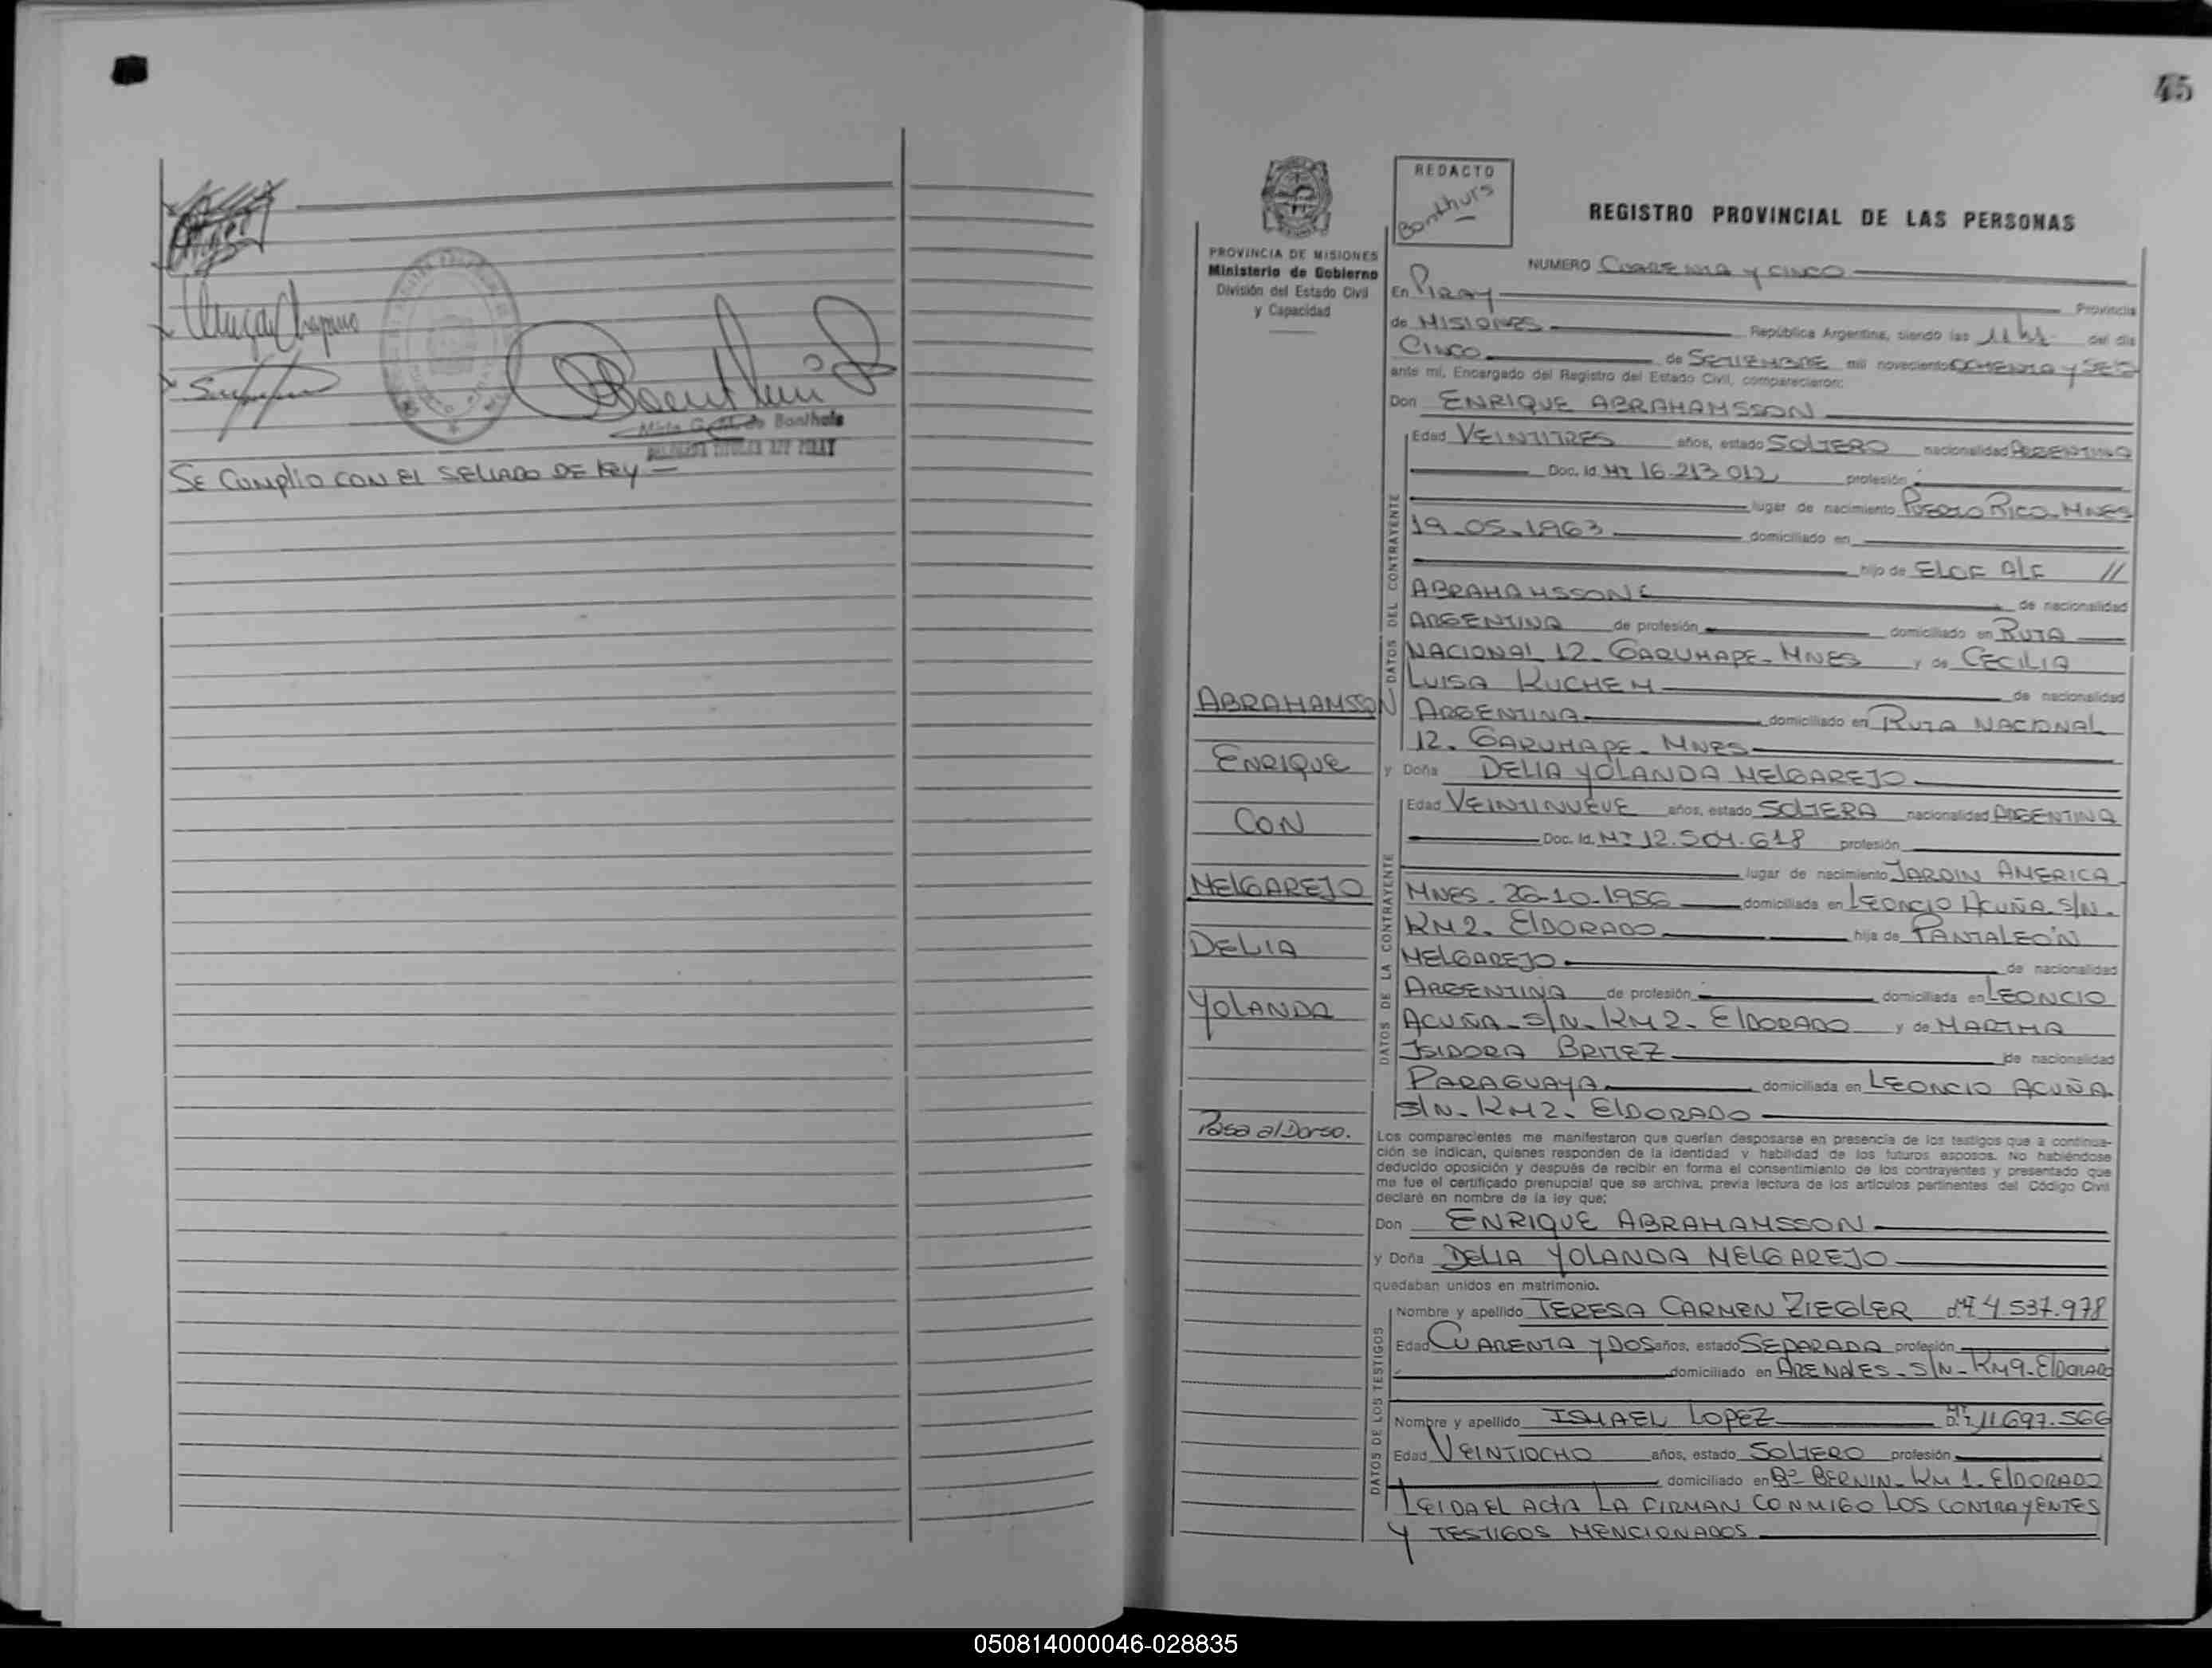 SE CUMPLIO CON EL SELLADO DE LEY
45
REDACTO
Bonthurs
REGISTRO PROVINCIAL DE LAS PERSONAS
PROVINCIA DE MISIONES
Ministerio de Gobierno
División del Estado Civil
y Capacidad
NUMERO CUARENTA Y CINCO
En PIRAY Provincia
de MISIONES República Argentina, siendo las 11 hs. del día
CINCO de SETIEMBRE mil novecientos OCHENTA y SEIS
ante mí, Encargado del Registro del Estado Civil, comparecieron:
Don ENRIQUE ABRAHAMSSON
Edad VEINTITRES años, estado SOLTERO nacionalidad ARGENTINA
Doc. Id. MI 16.213.012 profesión
lugar de nacimiento PUERTO RICO-MNES
19-05-1963 domiciliado en
hijo de ELOF ALF //
ABRAHAMSSON de nacionalidad
ARGENTINA de profesión domiciliado en RUTA
NACIONAL 12-GARUHAPE-MNES y de CECILIA
LUISA KUCHEM de nacionalidad
ARGENTINA domiciliado en RUTA NACIONAL
12-GARUHAPE-MNES
y Doña DELIA YOLANDA MELGAREJO
Edad VEINTINUEVE años, estado SOLTERA nacionalidad ARGENTINA
Doc. Id. MI 12.504.618 profesión
lugar de nacimiento JARDIN AMERICA
MNES-26-10-1956 domiciliada en LEONCIO ACUÑA-S/N-
KM2-ELDORADO hija de PANTALEÓN
MELGAREJO de nacionalidad
ARGENTINA de profesión domiciliada en LEONCIO
ACUÑA-S/N-KM2-ELDORADO y de MARTHA
ISIDORA BRITEZ de nacionalidad
PARAGUAYA domiciliada en LEONCIO ACUÑA
S/N-KM2-ELDORADO
DATOS DEL CONTRAYENTE
DATOS DE LA CONTRAYENTE
ABRAHAMSSON
ENRIQUE
CON
MELGAREJO
DELIA
YOLANDA
Pasa al Dorso.
Los comparecientes me manifestaron que querían desposarse en presencia de los testigos que a continua-
ción se indican, quienes responden de la identidad y habilidad de los futuros esposos. No habiéndose
deducido oposición y después de recibir en forma el consentimiento de los contrayentes y presentado que
me fue el certificado prenupcial que se archiva, previa lectura de los artículos pertinentes del Código Civil
declaré en nombre de la ley que:
Don ENRIQUE ABRAHAMSSON
y Doña DELIA YOLANDA MELGAREJO
quedaban unidos en matrimonio.
DATOS DE LOS TESTIGOS
Nombre y apellido TERESA CARMEN ZIEGLER MI 4.537.978
Edad CUARENTA Y DOS años, estado SEPARADA profesión
domiciliado en ARENALES-S/N-KM9-ELDORADO
Nombre y apellido ISMAEL LOPEZ 11.697.566
Edad VEINTIOCHO años, estado SOLTERO profesión
domiciliado en Bº BERNIN-KM 1-ELDORADO
LEIDA EL ACTA LA FIRMAN CONMIGO LOS CONTRAYENTES
Y TESTIGOS MENCIONADOS
050814000046-028835